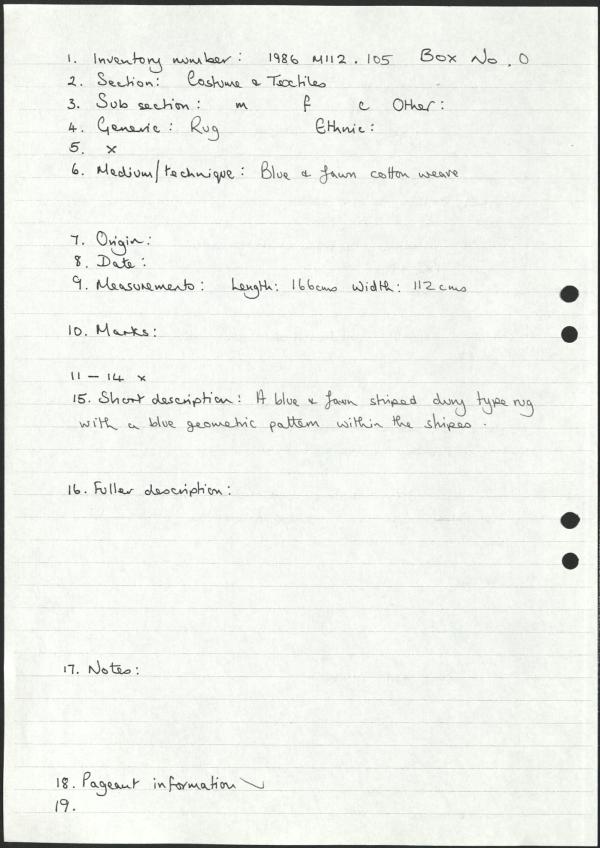 1. Inventory number: 1986 M112.105 Box No. 0
2. Section: Costume & Textiles
3. Sub section: m f c Other:
4. Generic: Rug Ethnic:
5. x
6. Medium/technique: Blue & fawn cotton weave
7. Origin:
8. Date:
9. Measurements: Length: 166cms Width: 112cms
10. Marks:
11 – 14 x
15. Short description: A blue & fawn striped dury type rug
with a blue geometric pattern within the stripes.
16. Fuller description:
17. Notes:
18. Pageant information
19.